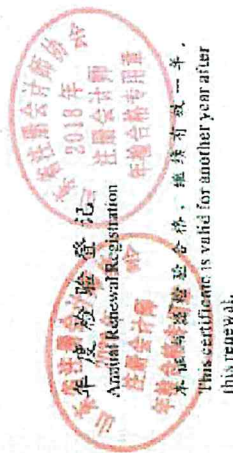 年度检验登记
Annual Renewal Registration
本证书经检验合格，继续有效一年。
This certificate is valid for another year after
this renewal.
注册会计师协会
2018年
注册会计师
年检合格专用章
注册会计师